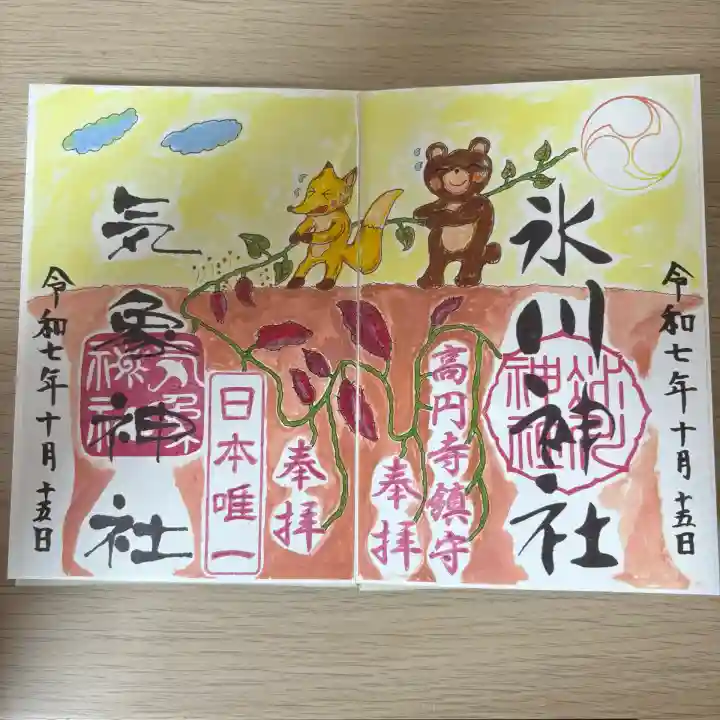 氷川神社
令和七年十月十五日
高円寺鎮守
奉拝
気象神社
奉拝
日本唯一
令和七年十月十五日